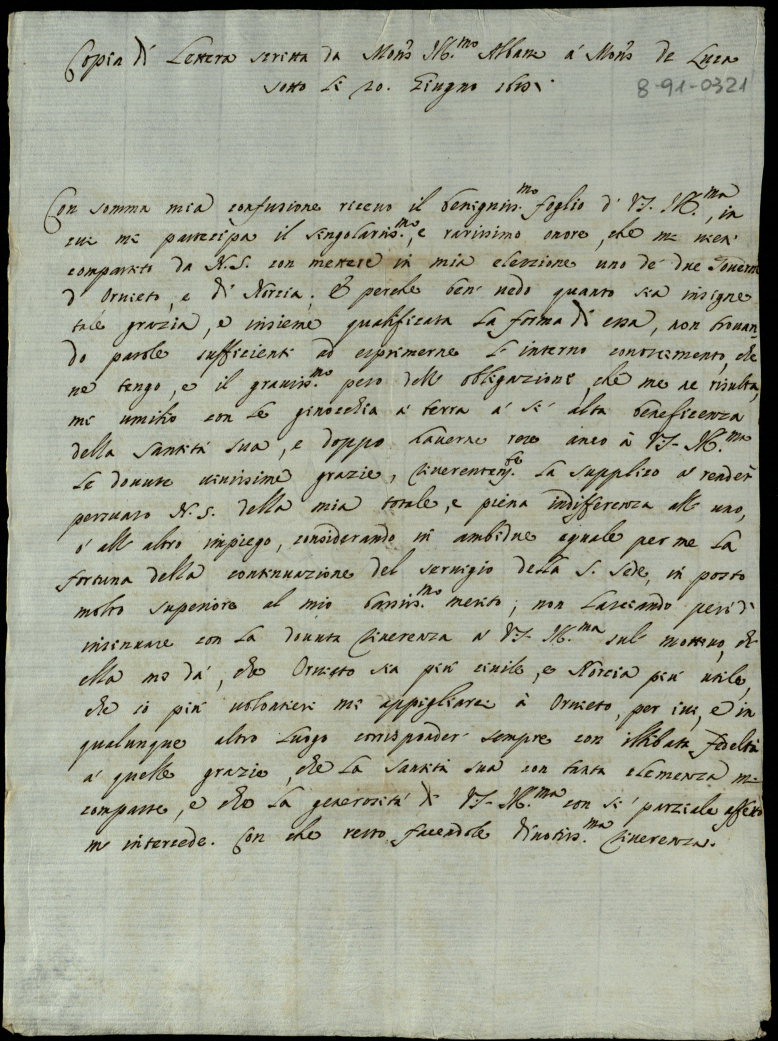 Copia di Lettera scritta da Mons. Ill.mo Albani à Mons. de Luca
sotto li 20. Giugno
8-91-0321
Con somma mia confusione riceuo il benigniss.mo foglio di V.S. Ill.ma, in
cui mi partecipa il singolariss.mo, e rarissimo onore, che mi uien
compartito da N.S. con mettere in mia elezzione uno de due Gouerni
d'Oruieto, e di Norcia; E perche ben uedo quanto sia insigne
tale grazia, e insieme qualificata la forma di essa, non trouan-
do parole sufficienti ad esprimerne l'interno conoscimento, che
ne tengo, e il grauiss.mo peso dell'obligazione, che me ne risulta,
mi umilio con le ginocchia à terra à sì alta beneficenza
della Santità Sua, e doppo hauerne rese anco à V.S. Ill.ma
le douute uiuissime grazie, riuerentem.te la supplico à render
persuaso N.S. della mia totale, e piena indifferenza all'uno,
ò all'altro impiego, considerando in ambidue eguale per me la
fortuna della continuazione del seruigio della S. Sede, in posto
molto superiore al mio bassiss.mo merito; non lasciando però di
insinuare con la douuta riuerenza à V.S. Ill.ma sul motiuo, che
ella mi dà, che Oruieto sia più ciuile, e Norcia più utile,
che io più uolontieri mi appigliarei à Oruieto, per cui, e in
qualunque altro luogo corrisponderò sempre con illibata fedeltà
à quelle grazie, che la Santità Sua con tanta clemenza mi
comparte, e che la generosità di V.S. Ill.ma con sì parziale affetto
m'intercede. Con che resto facendole diuotiss.ma riuerenza.